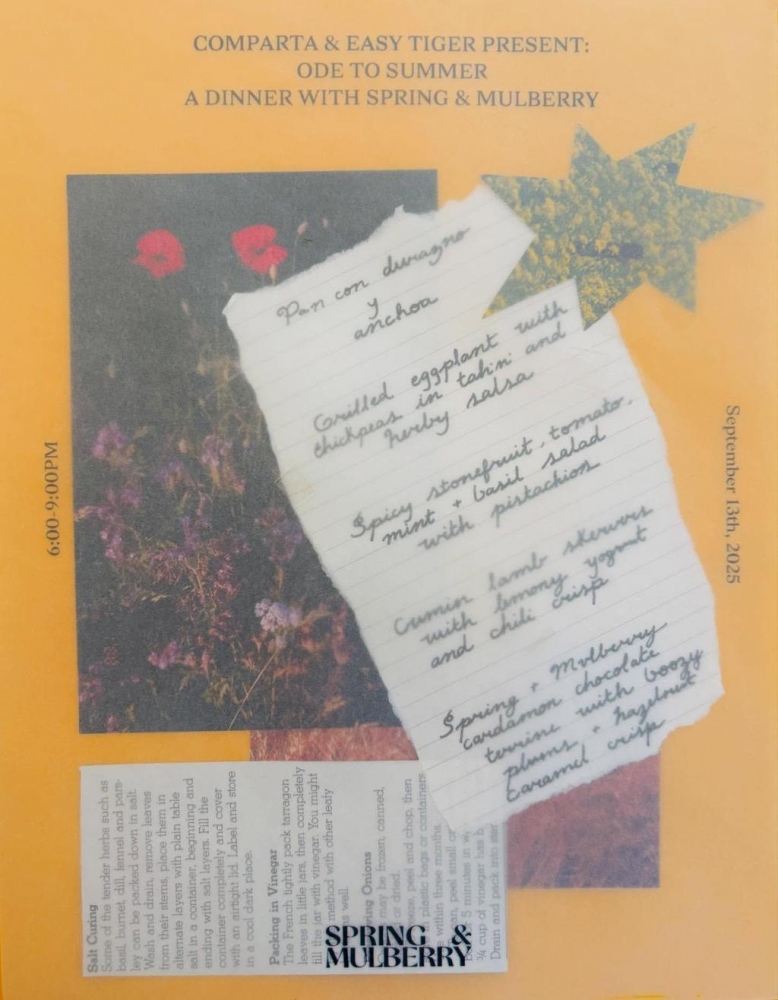 COMPARTA & EASY TIGER PRESENT:
ODE TO SUMMER
A DINNER WITH SPRING & MULBERRY
6:00-9:00PM
September 13th, 2025
Pan con durazno
y
anchoa
Grilled eggplant with
chickpeas in tahini and
herby salsa
Spicy stonefruit, tomato,
mint + basil salad
with pistachios
Cumin lamb skewers
with lemony yogurt
and chili crisp
Spring + Mulberry
cardamon chocolate
terrine with boozy
plums + hazelnut
caramel crisp
Salt Curing
Some of the tender herbs such as
basil, burnet, dill, fennel and pars-
ley can be packed down in salt.
Wash and drain, remove leaves
from their stems, place them in
alternate layers with plain table
salt in a container, beginning and
ending with salt layers. Fill the
container completely and cover
with an airtight lid. Label and store
in a cool dark place.
Packing in Vinegar
The French tightly pack tarragon
leaves in little jars, then completely
fill the jar with vinegar. You might
method with other leafy
as well.
Onions
may be frozen, canned,
or dried.
peel and chop, then
plastic bags or containers
within three months.
peel small
5 minutes in
¾ cup of vinegar has
Drain and pack into
SPRING &
MULBERRY